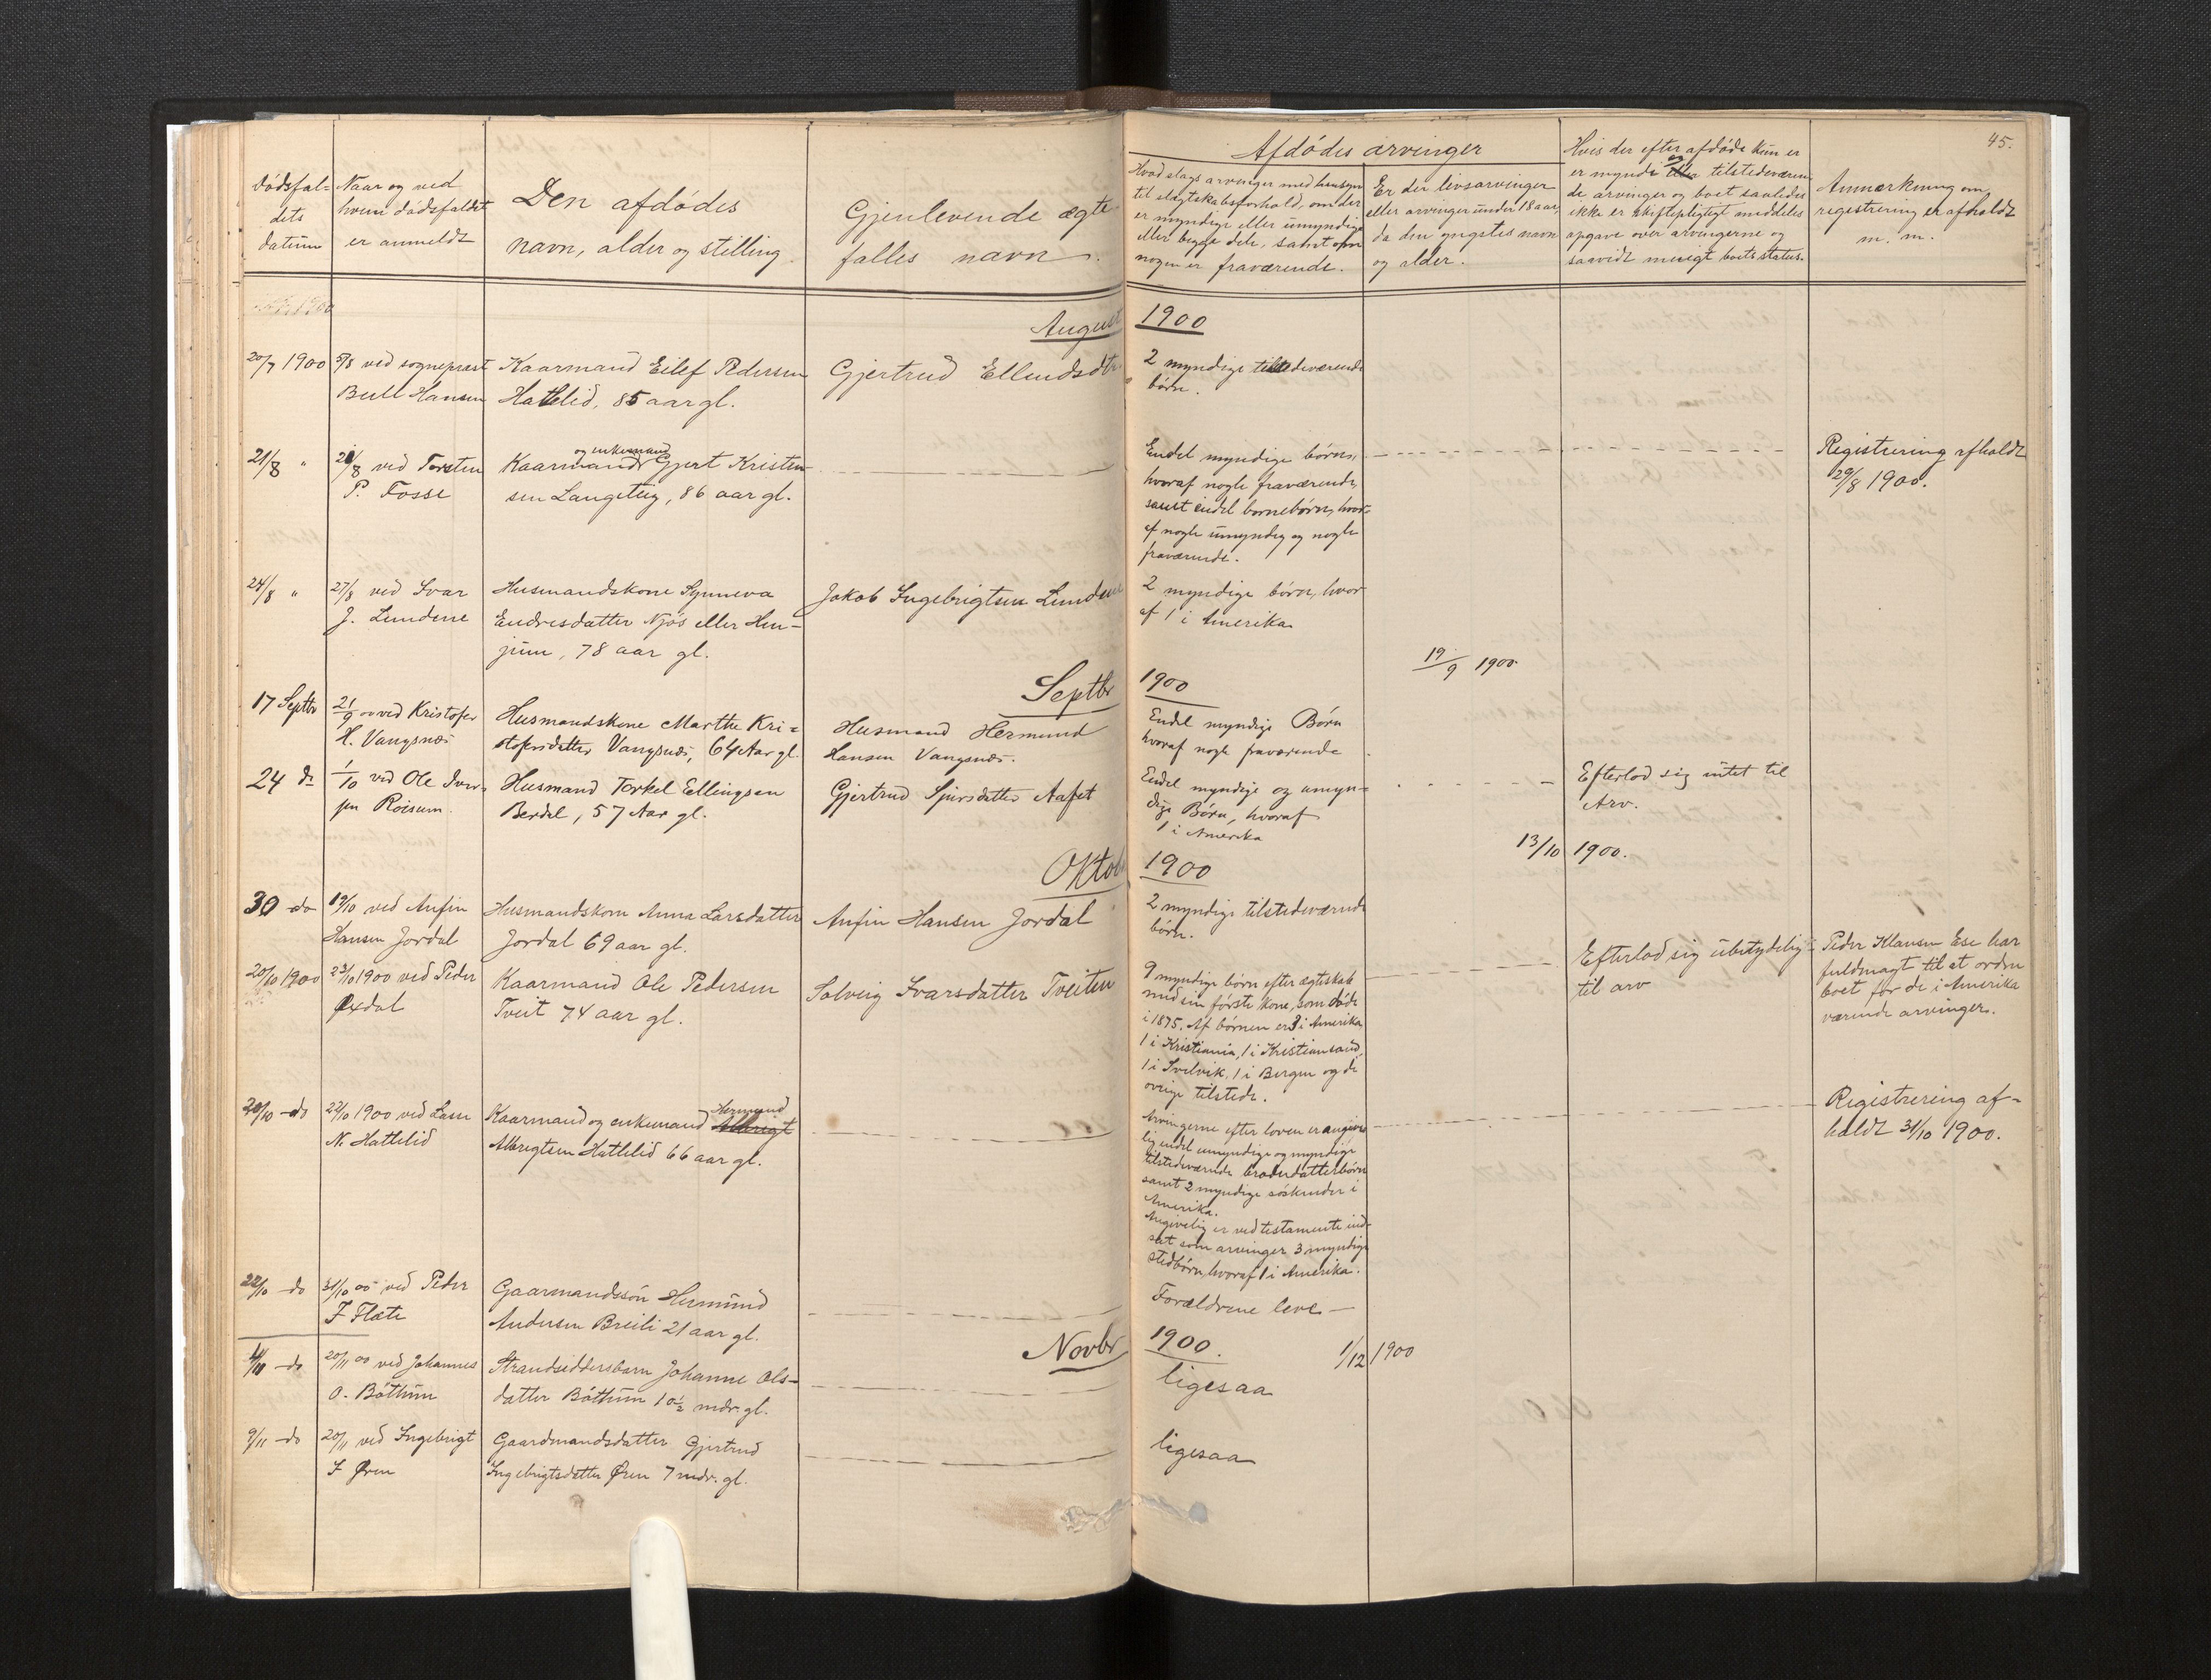 45.
Dödsfal-
dets
datum
Naar og ved
hvem dödsfaldet
er anmeldt
Den afdödes
navn, alder og stilling.
Gjenlevende ægte
fælles navn.
Afdödes arvinger
Hvad slags arvinger med hensyn
til slægtskabsforhold, om der
er myndige eller umyndige
eller begge dele, samt om
nogen er fraværende.
Er der livsarvinger
eller arvinger under 18 aar,
da den yngstes navn
og alder.
Hvis der efter afdöde kun er
er myndi og tilstedeværen
de arvinger og boet saaledes
ikke er skiftepligtigt meddeles
opgave over arvingerne og
saavidt muligt boets status.
Anmærkning om
registrering er afholdt
m. m.
August 1900
20/7 1900
5/8 ved sogneprest
Bull Hansen
Kaarmand Eilef Pedersen
Hatlelid, 85 aar gl.
Gjertrud Ellendsdtr
2 myndige tilstedeværende
börn.
21/8 "
28/8 ved Torsten
P. Fosse
og enkemand
Kaarmand Gjert Kristen
sen Langeteig, 86 aar gl.
Endel myndige börn,
hvoraf nogle fraværende,
samt endel bornebörn, hvor-
af nogle umyndig og nogle
fraværende.
Registrering afholdt
29/8 1900.
24/8 "
27/8 ved Ivar
J. Lundene
Husmandskone Synneva
Endresdatter Njös eller Hen-
jum, 78 aar gl.
Jakob Ingebrigtsen Lundene
2 myndige börn, hvor
af 1 i Amerika
19/9 1900.
Septbr 1900
17 Septbr
21/9 ved Kristofer
H. Vangsnæs
Husmandskone Marthe Kri-
stofersdatter Vangsnæs, 64 Aar gl.
Husmand Hermund
Hansen Vangsnæs.
Endel myndige Börn
hvoraf nogle fraværende
24 do
1/10 ved Ole Iver-
sen Roisum.
Husmand Torkel Ellingsen
Berdal, 57 Aar gl.
Gjertrud Sjursdatter Aafet
Endel myndige og umyn-
dige Börn, hvoraf
1 i Amerika
Efterlod sig intet til
Arv.
13/10 1900.
Oktob 1900
30 do
19/10 ved Anfin
Hansen Jordal
Husmandskone Anna Larsdatter
Jordal 69 aar gl.
Anfin Hansen Jordal
2 myndige tilstedeværende
börn.
20/10 1900
23/10 1900 ved Peder
Øxdal
Kaarmand Ole Pedersen
Tveit 74 aar gl.
Solveig Ivarsdatter Tveiten
9 myndige börn efter ægteskab
med sin förste kone, som döde
i 1875. Af börnen er 3 i Amerika,
1 i Kristiania, 1 i Kristiansand,
1 i Svelvik, 1 i Bergen og de
övrige tilstede.
Efterlod sig ubetydelig
til arv
Peder Klausen Ese har
fuldmagt til at ordne
boet for de i Amerika
værende arvinger.
20/10 do
22/10 1900 ved Lasse
N. Hatlelid
Hermund
Kaarmand og enkemand Albrigt
Albrigtsen Hatlelid 66 aar gl.
Arvingerne efter loven er angive
lig endel umyndige og myndige
tilstedeværende broderdatterbörn
samt 2 myndige söskender i
Amerika.
Angivelig er ved testamente ind-
sat som arvinger 3 myndige
stedbörn, hvoraf 1 i Amerika.
Registrering af-
holdt 31/10 1900.
22/10 do
31/10 00 ved Peder
J Flæte
Gaarmandssön Hermund
Andersen Breili 21 aar gl.
Forældrene leve
Novbr 1900.
1/12 1900
do
20/11 00 ved Johannes
O. Böthun
Strandsiddersbarn Johanne Ols-
datter Böthun 10½ mdr. gl.
ligesaa
9/11 do
20/11 ved Ingebrigt
J Øren
Gaardmandsdatter Gjertrud
Ingebrigtsdatter Øren 7 mdr. gl.
ligesaa